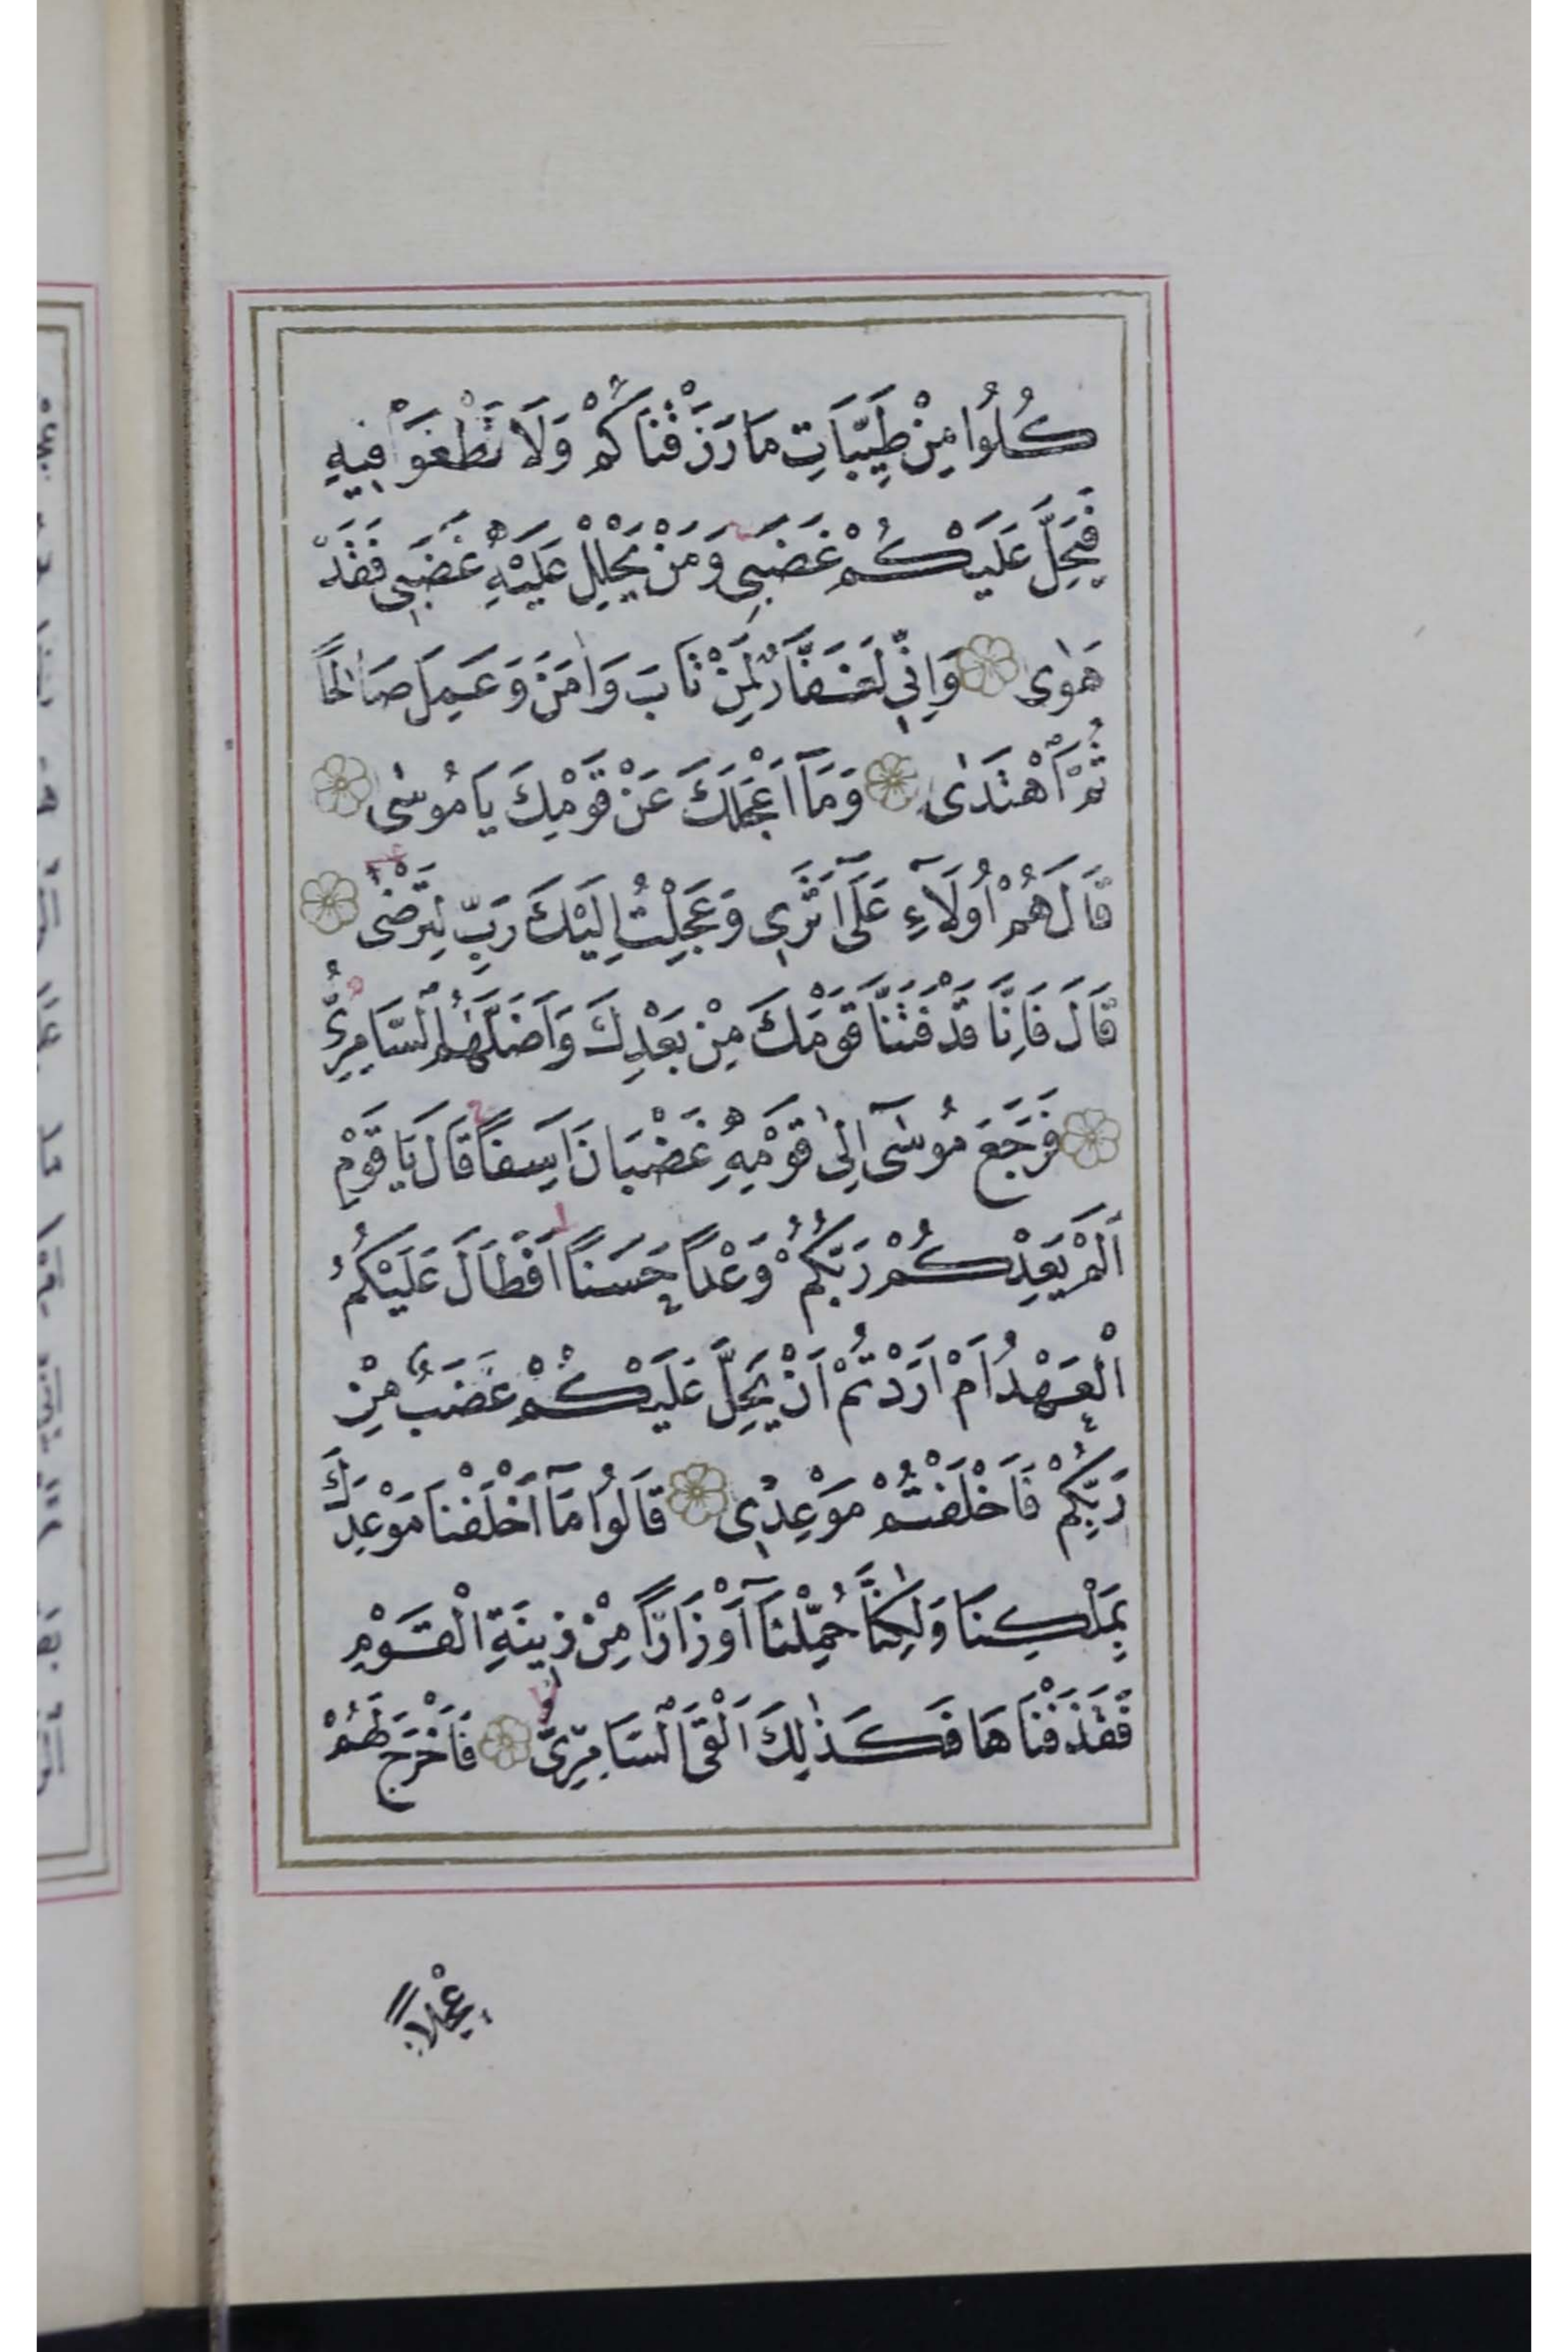 كُلُوا مِنْ طَيِّبَاتِ مَا رَزَقْنَاكُمْ وَلَا تَطْغَوْا فِيهِ
فَيَحِلَّ عَلَيْكُمْ غَضَبِي وَمَنْ يَحْلِلْ عَلَيْهِ غَضَبِي فَقَدْ
هَوٰى وَاِنِّي لَغَفَّارٌ لِمَنْ تَابَ وَاٰمَنَ وَعَمِلَ صَالِحًا
ثُمَّ اهْتَدٰى وَمَٓا اَعْجَلَكَ عَنْ قَوْمِكَ يَا مُوسٰى
قَالَ هُمْ اُولَٓاءِ عَلٰٓى اَثَرِي وَعَجِلْتُ اِلَيْكَ رَبِّ لِتَرْضٰى
قَالَ فَاِنَّا قَدْ فَتَنَّا قَوْمَكَ مِنْ بَعْدِكَ وَاَضَلَّهُمُ السَّامِرِيُّ
فَرَجَعَ مُوسٰٓى اِلٰى قَوْمِهِ غَضْبَانَ اَسِفًا قَالَ يَا قَوْمِ
اَلَمْ يَعِدْكُمْ رَبُّكُمْ وَعْدًا حَسَنًا اَفَطَالَ عَلَيْكُمُ
الْعَهْدُ اَمْ اَرَدْتُمْ اَنْ يَحِلَّ عَلَيْكُمْ غَضَبٌ مِنْ
رَبِّكُمْ فَاَخْلَفْتُمْ مَوْعِدِي قَالُوا مَٓا اَخْلَفْنَا مَوْعِدَكَ
بِمَلْكِنَا وَلٰكِنَّا حُمِّلْنَٓا اَوْزَارًا مِنْ زِينَةِ الْقَوْمِ
فَقَذَفْنَاهَا فَكَذٰلِكَ اَلْقَى السَّامِرِيُّ فَاَخْرَجَ لَهُمْ
عِجْلًا